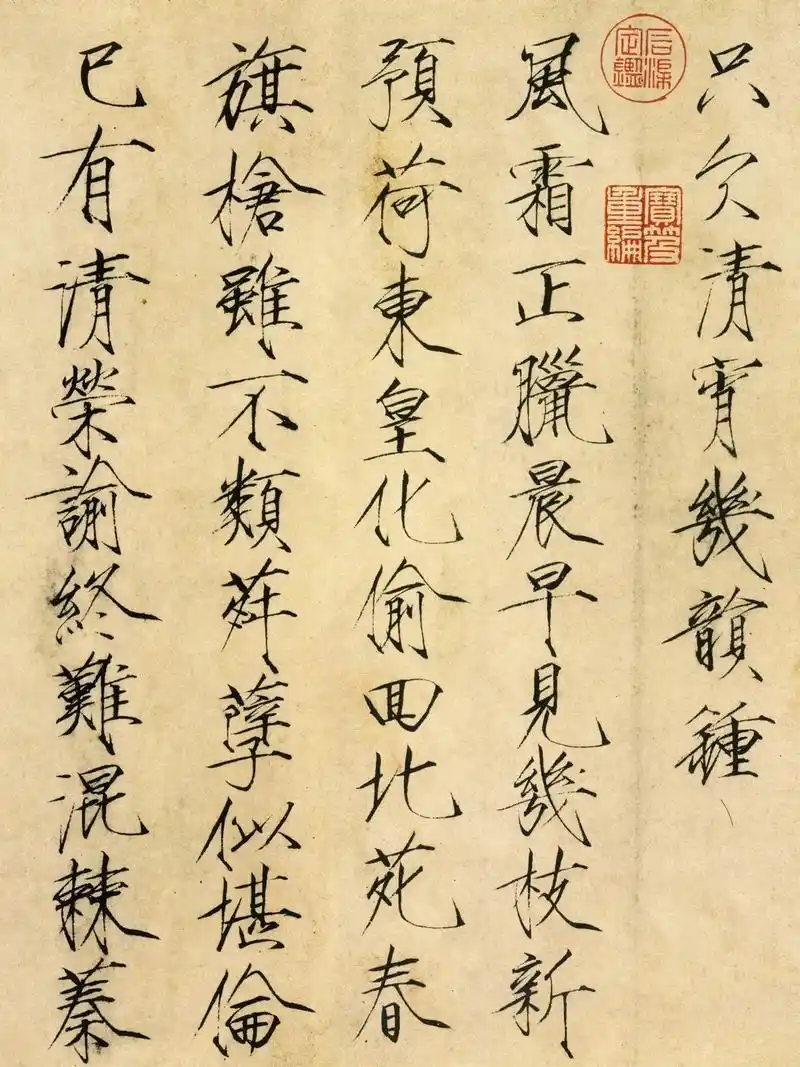 只欠清宵幾韻鍾
風霜正臘晨早見幾枝新
預荷東皇化偷回北苑春
旗槍雖不類荈孽似堪倫
已有清榮諭終難混棘蓁